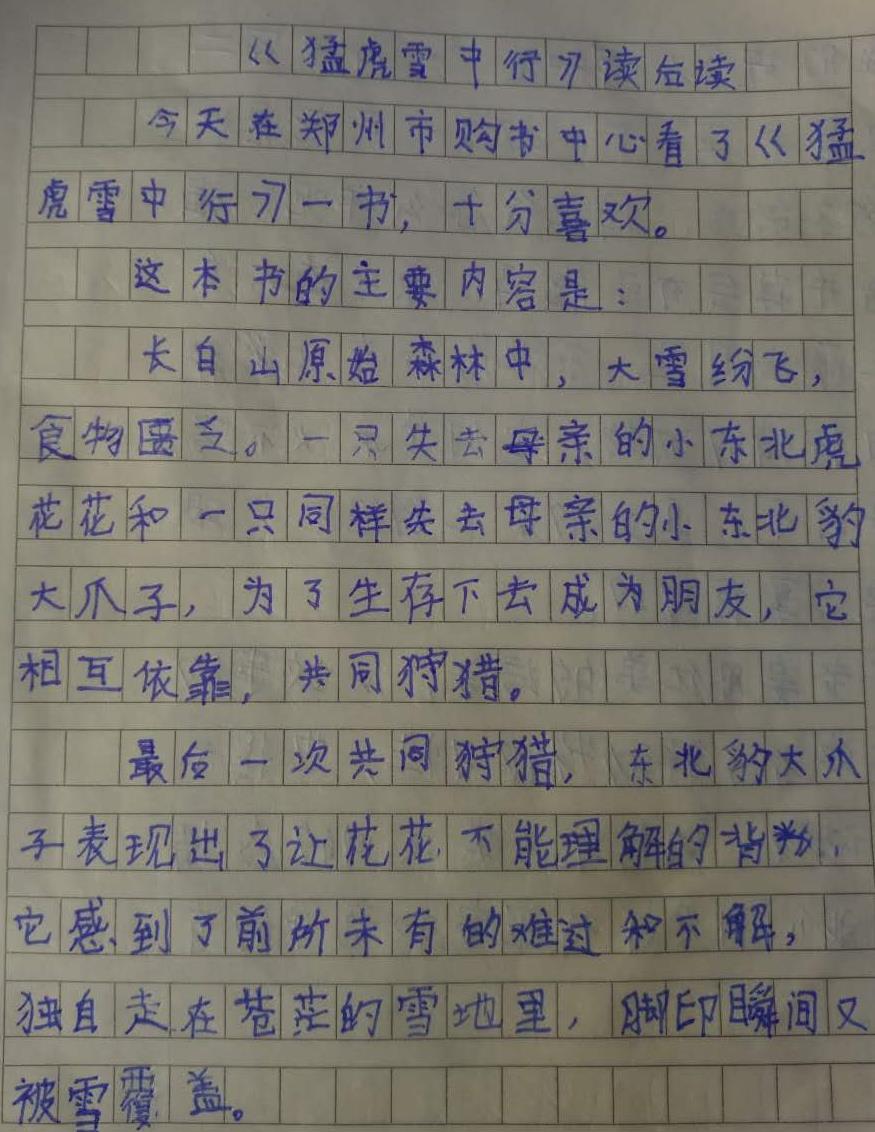 《猛虎雪中行》读后读
今天在郑州市购书中心看了《猛
虎雪中行》一书，十分喜欢。
这本书的主要内容是：
长白山原始森林中，大雪纷飞，
食物匮乏。一只失去母亲的小东北虎
花花和一只同样失去母亲的小东北豹
大爪子，为了生存下去成为朋友，它
相互依靠，共同狩猎。
最后一次共同狩猎，东北豹大爪
子表现出了让花花不能理解的背叛，
它感到了前所未有的难过和不解，
独自走在苍茫的雪地里，脚印瞬间又
被雪覆盖。